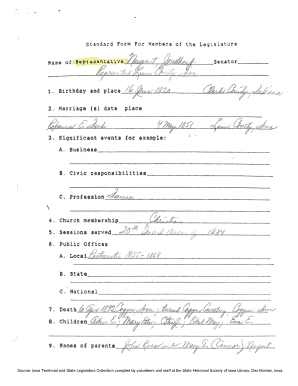 Standard Form For Members of the Legislature
Name of Representative Nugent, Jonathan Senator
Represented Linn County, Iowa
1. Birthday and place 16 June 1820 Clarke County, Indiana
2. Marriage (s) date place
4 May 1851 Linn County, Iowa
3. Significant events for example:
A. Business
B. Civic responsibilities
C. Profession Farmer
4. Church membership Christian
5. Sessions served 20th General Assembly 1884
6. Public Offices
A. Local Postmaster 1855-1868
B. State
C. National
7. Death 6 Apr 1892 Coggon Iowa - buried Coggon Cemetery Coggon, Iowa
8. Children
9. Names of parents John Ross and Mary A. (Connor) Nugent
Source: Iowa Territorial and State Legislators Collection compiled by volunteers and staff at the State Historical Society of Iowa Library, Des Moines, Iowa.